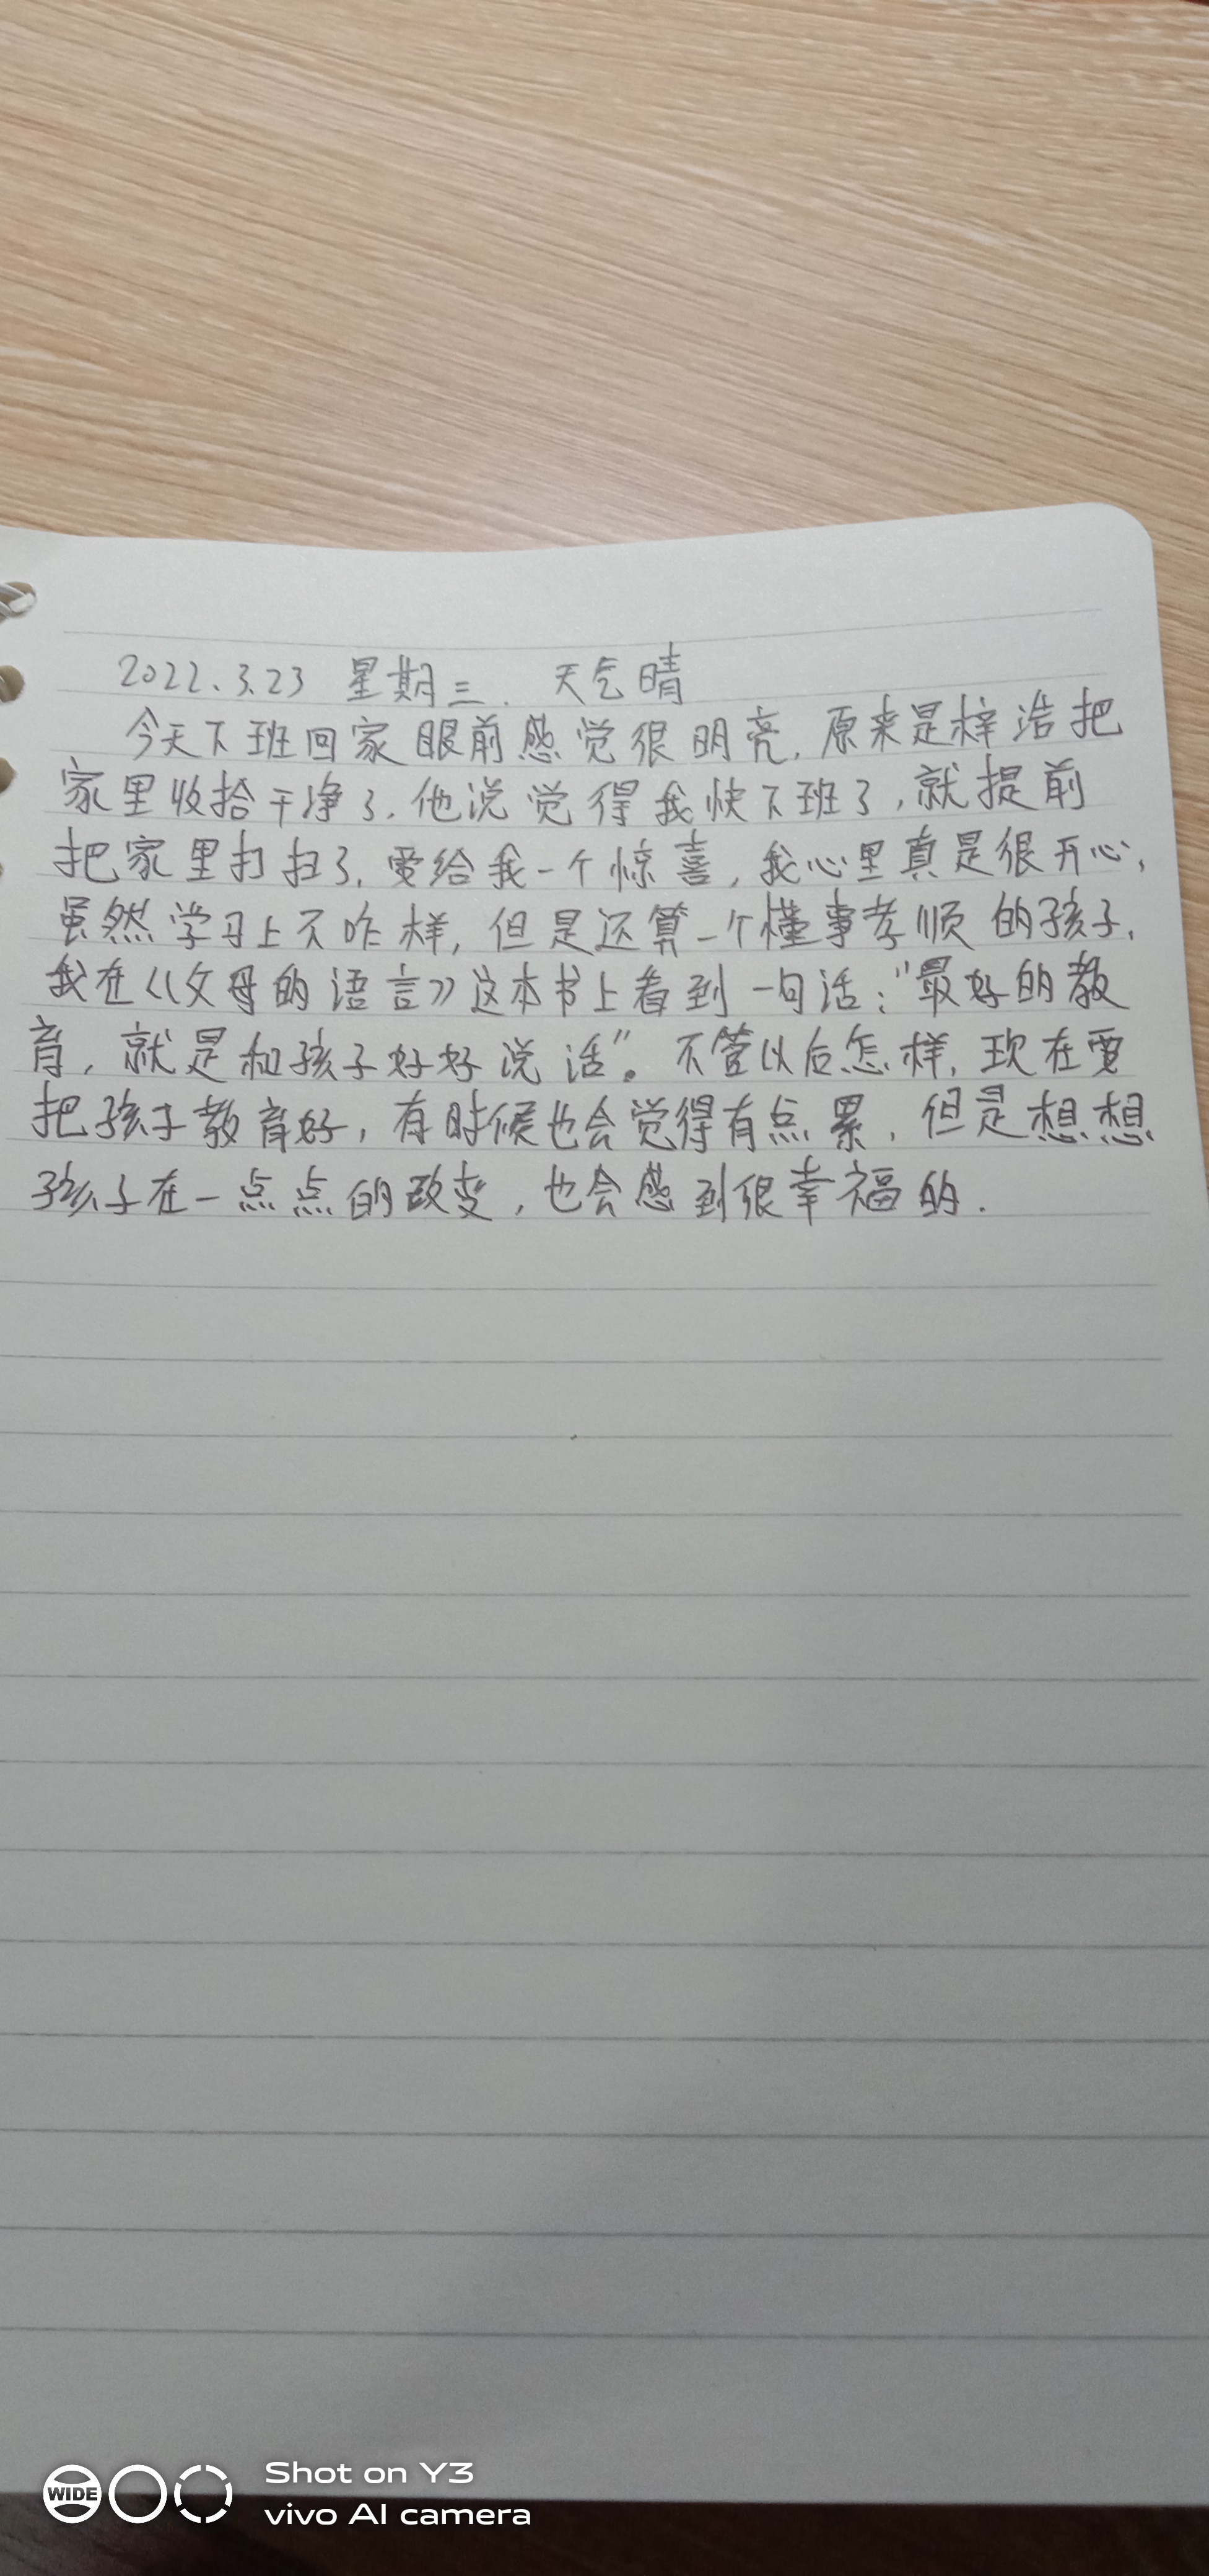 2022.3.23 星期三. 天气晴
今天下班回家眼前感觉很明亮,原来是梓浩把
家里收拾干净了.他说觉得我快下班了,就提前
把家里打扫了,要给我一个惊喜,我心里真是很开心,
虽然学习上不咋样,但是还算一个懂事孝顺的孩子,
我在《父母的语言》这本书上看到一句话:"最好的教
育,就是和孩子好好说话"。不管以后怎样,现在要
把孩子教育好,有时候也会觉得有点累,但是想想
孩子在一点点的改变,也会感到很幸福的.
WIDE
Shot on Y3
vivo AI camera